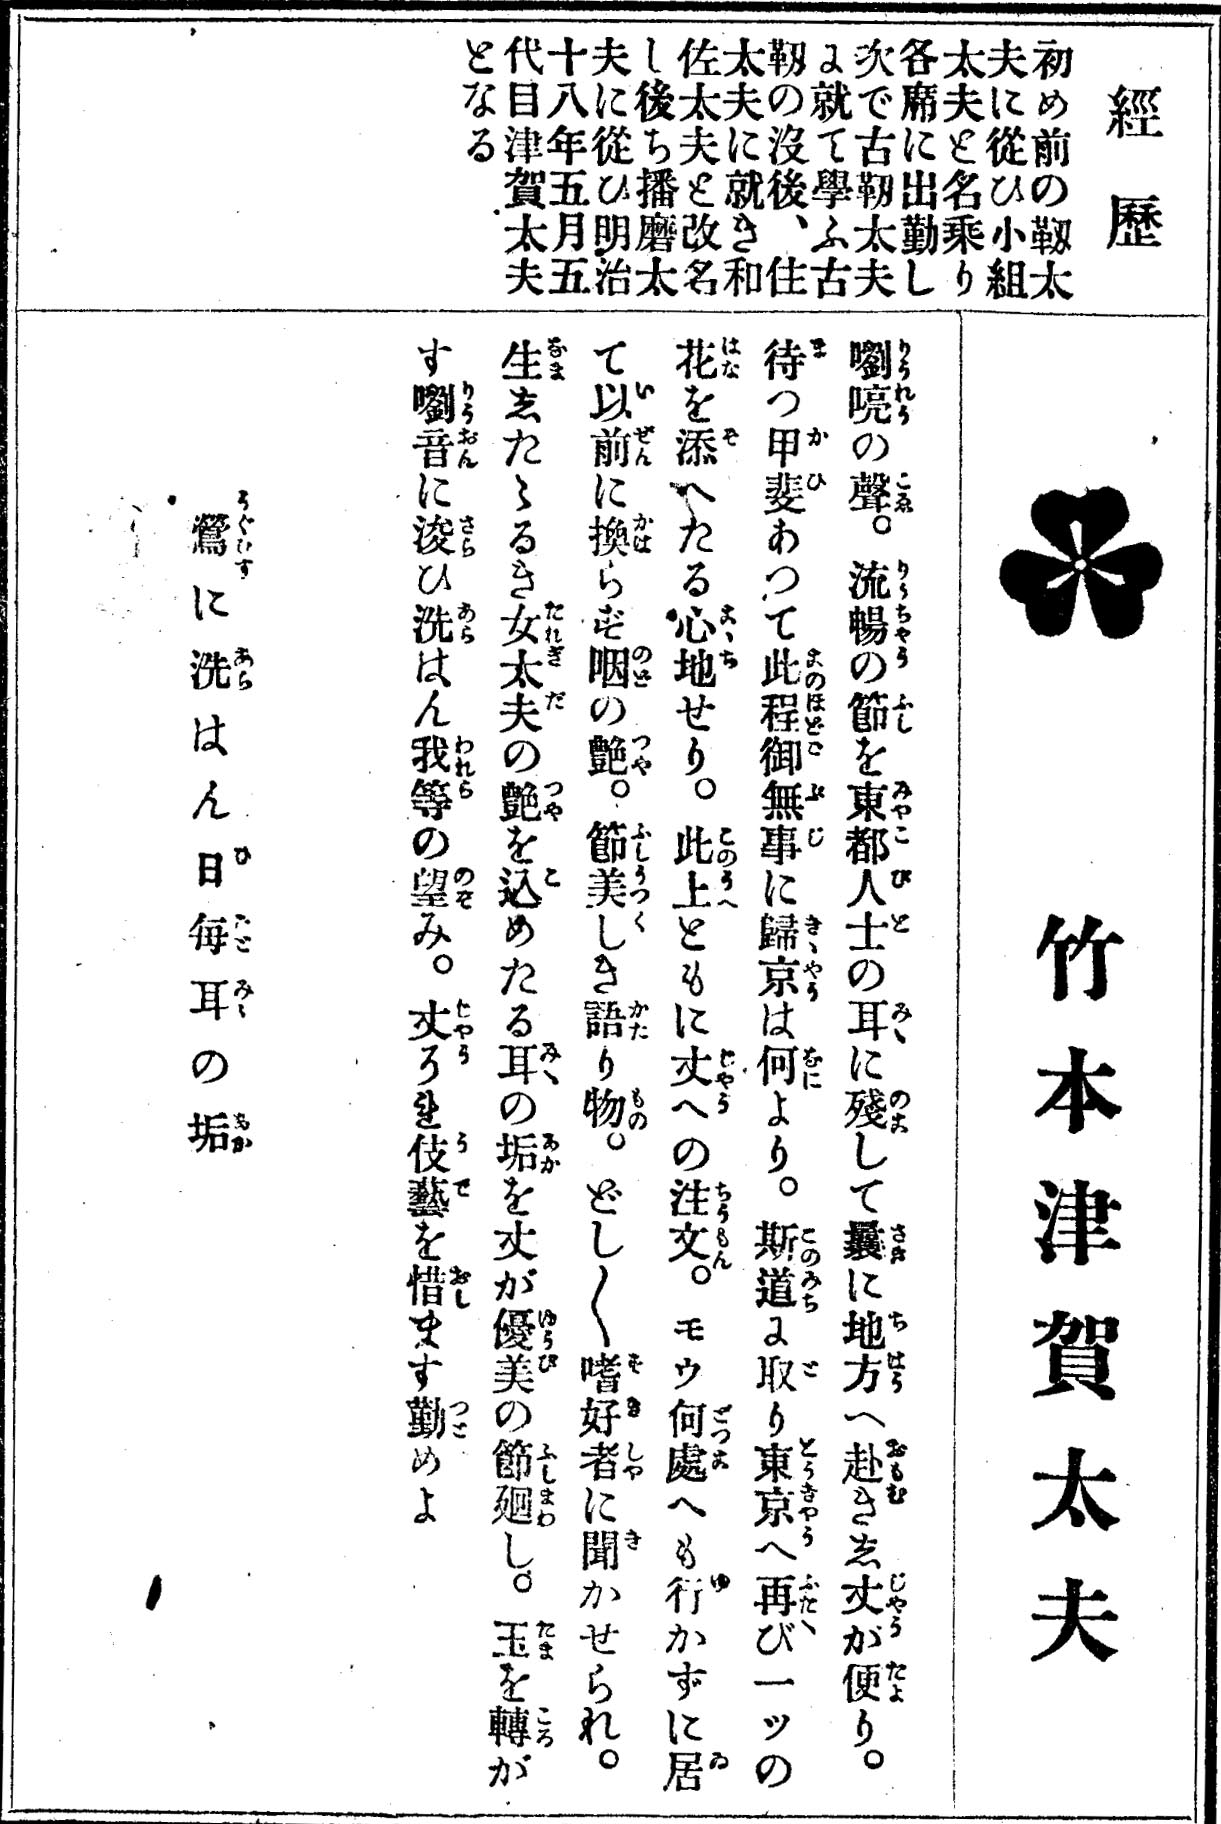 經歷
初め前の靱太
夫に從ひ小組
太夫と名乘り
各席に出勤し
次で古靱太夫
に就て學ふ古
靱の沒後、住
太夫に就き和
佐太夫と改名
し後ち播磨太
夫に從ひ明治
十八年五月五
代目津賀太夫
となる
竹本津賀太夫
嚠喨の聲。流暢の節を東都人士の耳に殘して曩に地方へ赴きし丈が便り。
待つ甲斐あつて此程御無事に歸京は何より。斯道に取り東京へ再び一ッの
花を添へたる心地せり。此上ともに丈への注文。モウ何處へも行かずに居
て以前に換らず咽の艶。節美しき語り物。どし〱嗜好者に聞かせられ。
生したゝるき女太夫の艶を込めたる耳の垢を丈が優美の節廻し。玉を轉が
す嚠音に浚ひ洗はん我等の望み。丈それ伎藝を惜ます勤めよ
鶯に洗はん日每耳の垢